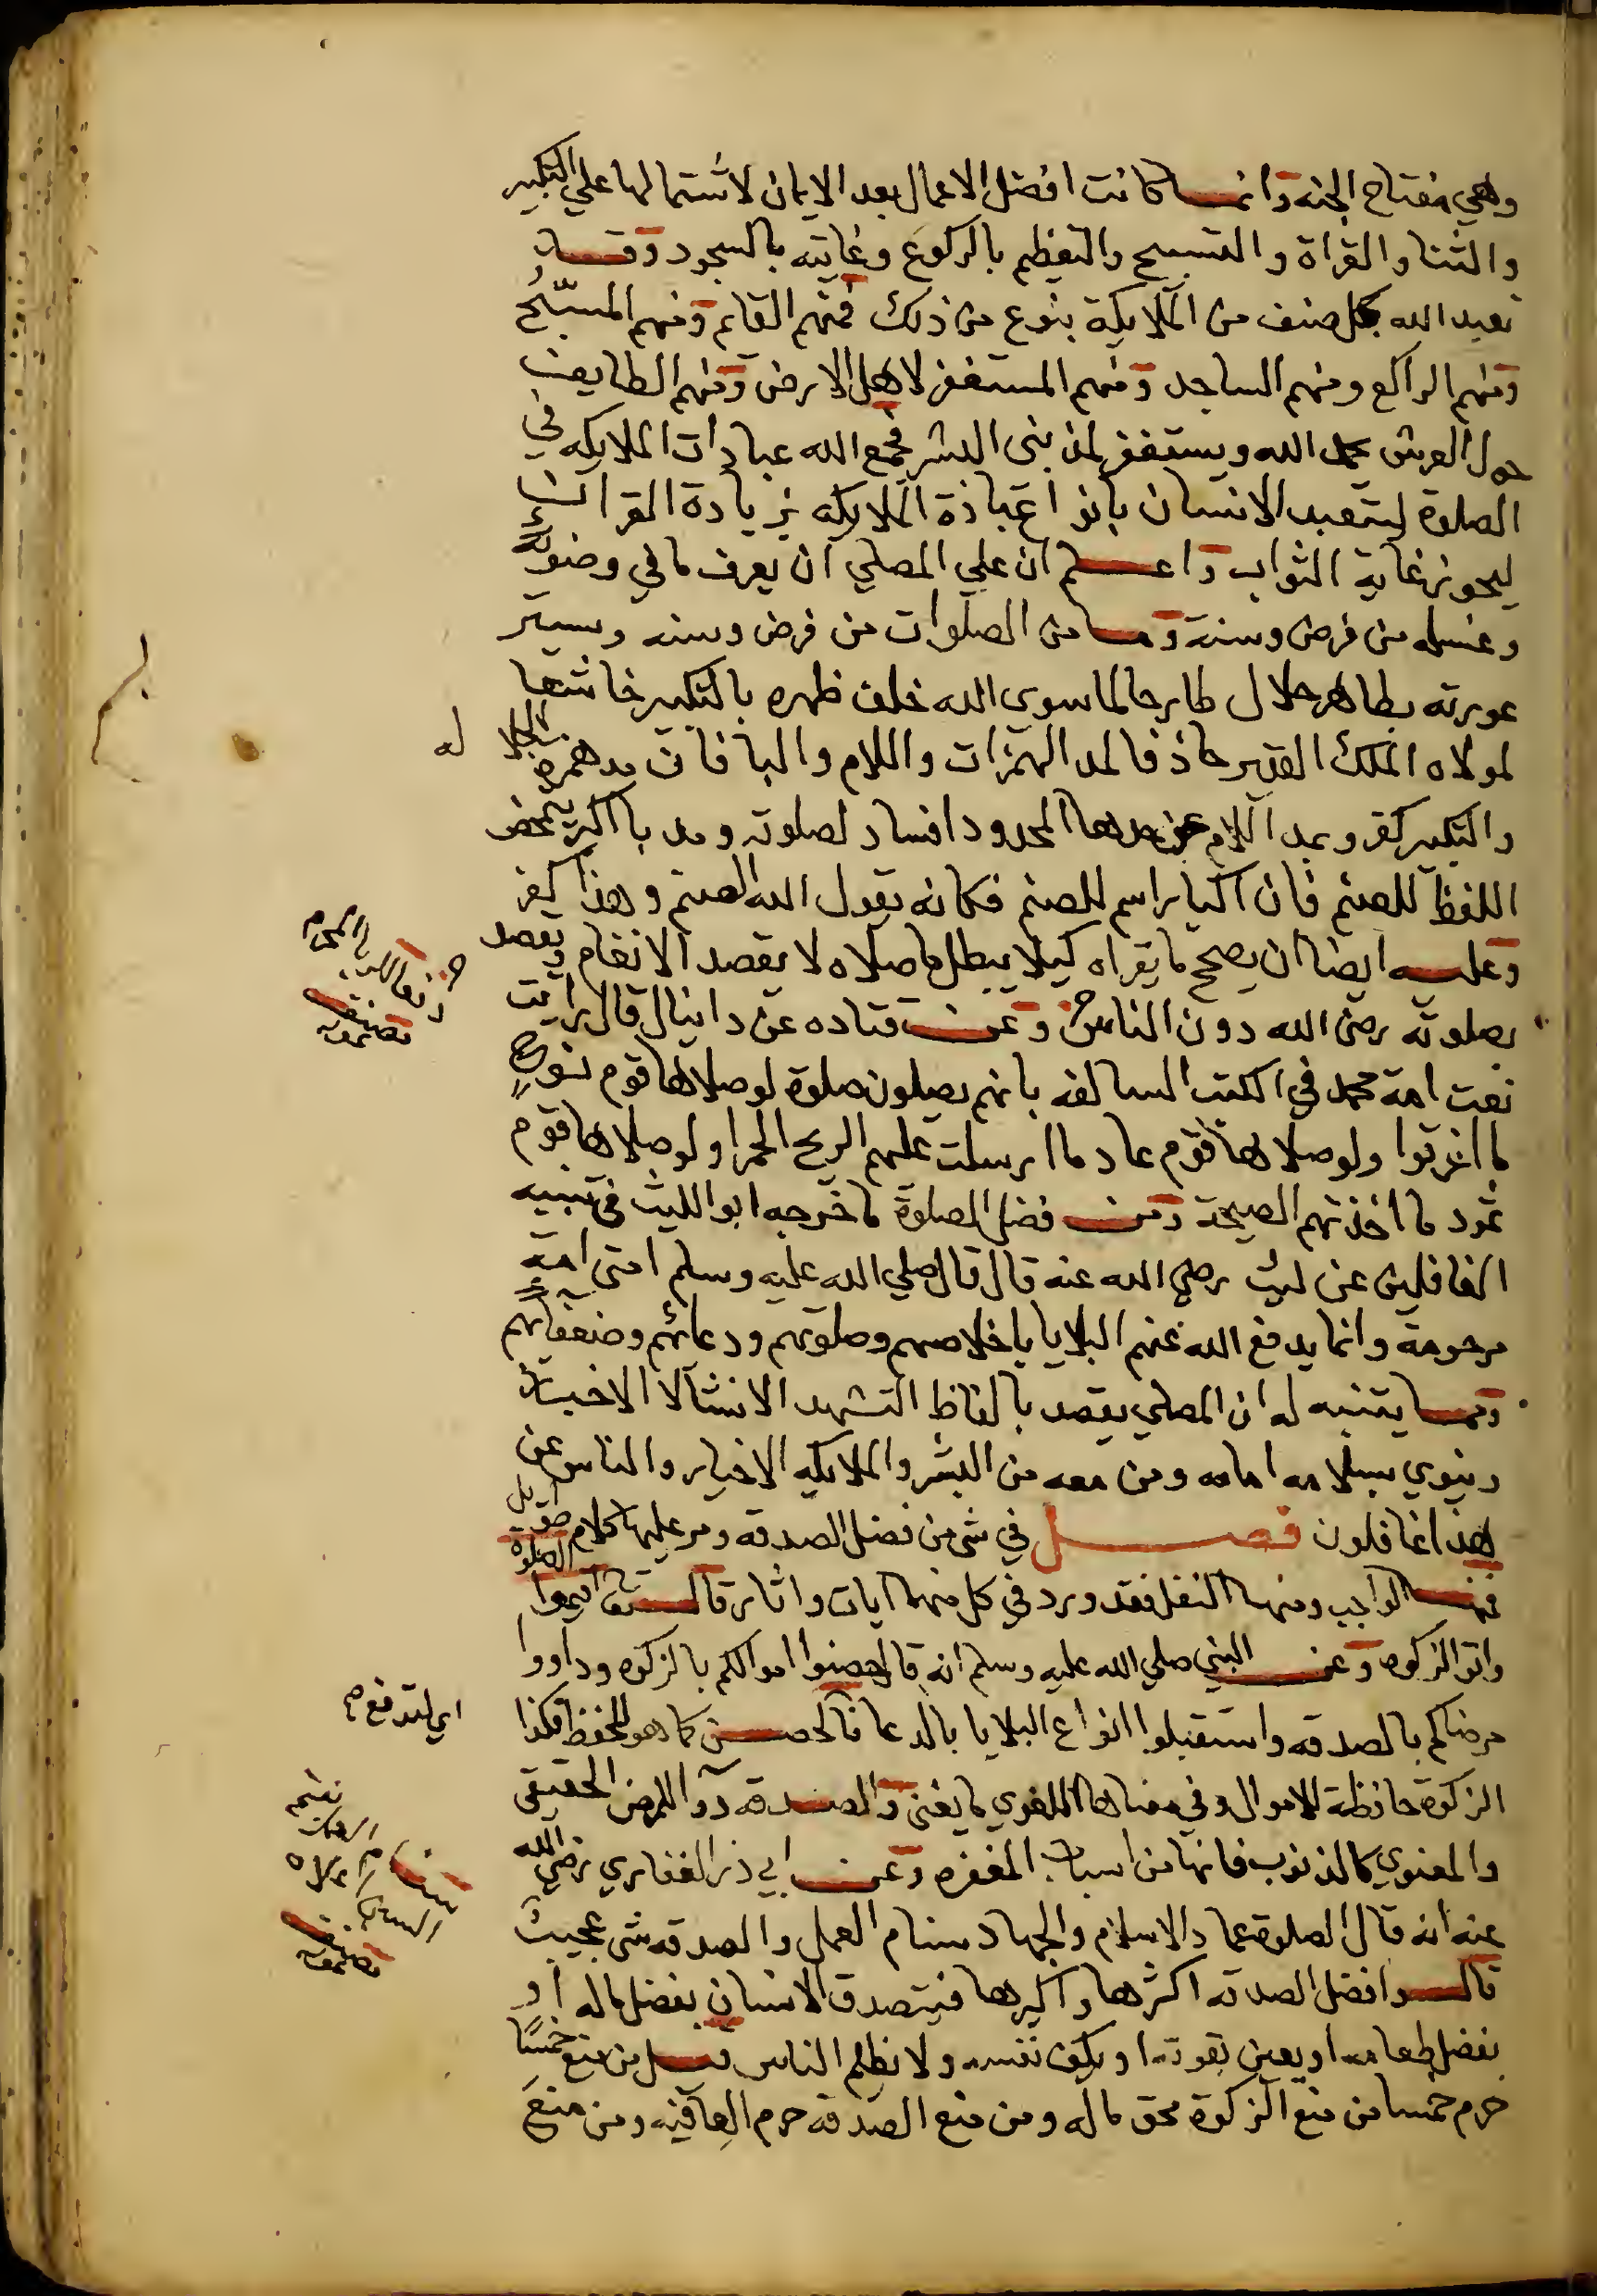 وهي مفتاح الجنه وانما كانت افضل الاعمال بعد الايمان لاشتمالها علي التكبير
والثنا والقراة والتسبيح والتعظيم بالركوع وغايته بالسجود وقد
تعبد الله بكل صنف من الملايكة بنوع من ذلك فمنهم القايم ومنهم المسبّح
ومنهم الراكع ومنهم الساجد ومنهم المستغفر لاهل الارض ومنهم الطايف
حول العرش بحمد الله ويستغفر لمن بنى البشر فجمع الله عبادات الملايكه في
الصلوة ليتعبد الانسان بانواع عبادة الملايكه بزيادة القران
ليحوز غاية الثواب واعلم ان علي المصلي ان يعرف ما في وضوئه
وغسله من فرض وسنة وما من الصلوات من فرض وسنه ويستر
عورته بطاهر حلال طارحا لما سوي الله خلف ظهره بالتكبير خاشعا
لمولاه الملك القدير حاذفا لمد الهمزات واللام والبا فان مد همزة الجلالة
والتكبير كفر وبمد اللام عن حدها المحدود افساد لصلوته ومد با اكبر يمحض
اللفظ للصنم فان اكبار اسم للصنم فكانه يقول الله الصنم وهذا كفر
وعليه ايضا ان يصحح ما يقراه كيلا يبطل ما صلاه لا يقصد الانغام ويقصد
بصلوته رضى الله دون الناس وعن قتاده عن دانيال قال رايت
نعت امة محمد في الكتب السالفه بانهم يصلون صلوة لو صلاها قوم نوح
ما اغرقوا ولو صلاها قوم عاد ما ارسلت عليهم الريح الحمرا ولو صلاها قوم
ثمود ما اخذتهم الصيحة ومن فضل الصلوة ما خرجه ابو الليث في تنبيه
الغافلين عن ليث رضي الله عنه قال قال صلي الله عليه وسلم امتى امة
مرحومة وانما يدفع الله عنهم البلايا باخلاصهم وصلوتهم ودعائهم وضعفائهم
ومما يتنبه له ان المصلي يقصد بالفاظ التشهد الانشا لا الاخبار
وينوي بسلامه امامه ومن معه من البشر والملايكه الاخيار والناس عن
هذا غافلون فصل في شى من فضل الصدقه ومر عليها كلام طويل
فمنها الواجب ومنها النفل فقد ورد في كل منهما ايات واثار قال تعالى اقيموا الصلوة
واتوا الزكوه وعن النبي صلي الله عليه وسلم انه قال حصنوا اموالكم بالزكوه وداووا
مرضاكم بالصدقه واستقبلوا انواع البلايا بالدعا فالحصن كما هو للحفظ فكذا
الزكوة حافظة للاموال وفي معناها اللغوي ما يغنى والصدقه دوا للمرض الحقيقى
والمعنوي كالذنوب فانها من اسباب المغفره وعن ابي ذر الغفاري رضي الله
عنه انه قال الصلوة عماد الاسلام والجهاد سنام العمل والصدقه شى عجيب
قالوا افضل الصدقه اكثرها واكبرها فيتصدق الانسان بفضل ماله او
بفضل طعامه او يعين بقوته او يكف نفسه ولا يظلم الناس قيل من منع خمسًا
حرم خمسا من منع الزكوة محق ماله ومن منع الصدقه حرم العافيه ومن منع
له
اي لتدفع